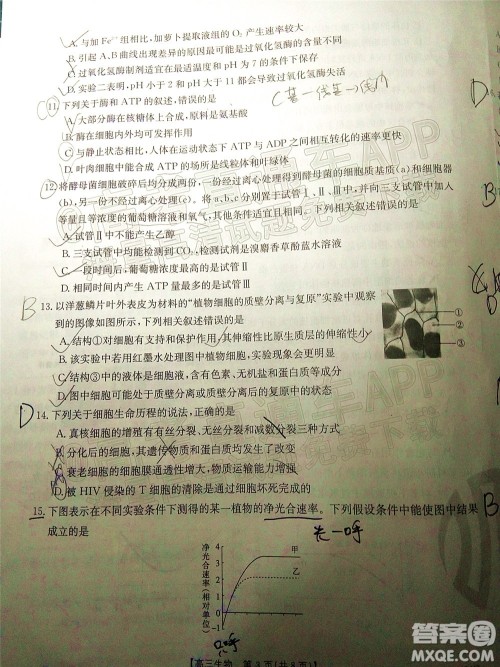 A. 与加 Fe³⁺ 组相比,加萝卜提取液组的 O₂ 产生速率较大
B. 引起 A、B 曲线出现差异的原因最可能是过氧化氢酶的数量不同
C. 过氧化氢酶制剂适宜在最适温度和 pH 为 7 的条件下保存
D. 实验二表明,pH 小于 2 和 pH 大于 11 都会导致过氧化氢酶失活
11. 下列关于酶和 ATP 的叙述,错误的是
A. 大部分酶在核糖体上合成,原料是氨基酸
B. 酶在细胞内外均可发挥作用
C. 与静止状态相比,人体在运动状态下 ATP 与 ADP 之间相互转化的速率更快
D. 叶肉细胞中能合成 ATP 的场所是线粒体和叶绿体
12. 将酵母菌细胞破碎后均分成两份,一份经过离心处理得到酵母菌的细胞质基质(a)和细胞器
(b),另一份不经过离心处理得到(c)。把a、b、c分别置于试管Ⅰ、Ⅱ、Ⅲ中,并向三支试管中加入
等量且等浓度的葡萄糖溶液和氧气,其他条件适宜且相同。下列相关叙述错误的是
A. 试管Ⅱ中不能产生乙醇
B. 三支试管中均能检测到 CO₂,检测试剂是溴麝香草酚蓝水溶液
C. 一段时间后,葡萄糖浓度最高的是试管Ⅱ
D. 相同时间内产生 ATP 量最多的是试管Ⅲ
B
13. 以洋葱鳞片叶外表皮为材料的“植物细胞的质壁分离与复原”实验中观察
到的图像如图所示,下列相关叙述错误的是
A. 结构①对细胞有支持和保护作用,其伸缩性比原生质层的伸缩性小
B. 该实验中若用红墨水处理图中植物细胞,实验现象更明显
C. 结构③中的液体是细胞液,含有色素、无机盐和蛋白质等
D. 图示细胞可能处于质壁分离或质壁分离后的复原中的状态
①
②
③
D
14. 下列关于细胞生命历程的说法,正确的是
A. 真核细胞的增殖有有丝分裂、无丝分裂和减数分裂三种方式
B. 分化后的细胞,其遗传物质和蛋白质均发生了改变
C. 衰老细胞的细胞膜通透性增大,物质运输能力增强
D. 被 HIV 侵染的 T 细胞的清除是通过细胞坏死完成的
15. 下图表示在不同实验条件下测得的某一植物的净光合速率。下列假设条件中能使图中结果
成立的是
光-呼
净光合速率(相对单位)
4
3
2
1
0
-1
甲
乙
【高三生物 第 3 页(共 8 页)】